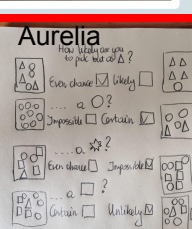 Aurelia
How likely are you
to pick out a △?
Even chance ☑ likely ☐
.... a ○?
Impossible ☐ Certain ☑
.... a ☆?
Even chance ☐ Impossible ☑
.... a ☐?
Certain ☐ Unlikely ☑